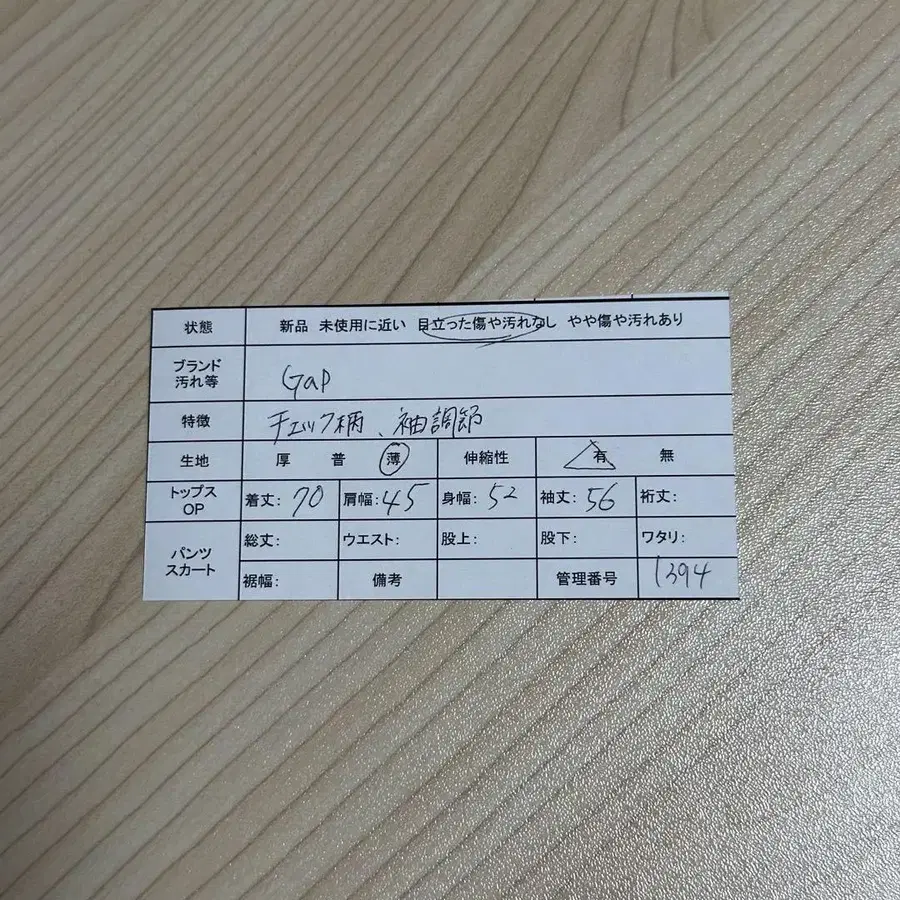 状態 新品 未使用に近い 目立った傷や汚れなし やや傷や汚れあり
ブランド
汚れ等 Gap
特徴 チェック柄、袖調節
生地 厚 普 薄 伸縮性 有 無
トップス
OP 着丈:70 肩幅:45 身幅:52 袖丈:56 裄丈:
パンツ
スカート 総丈: ウエスト: 股上: 股下: ワタリ:
裾幅: 備考 管理番号 1394